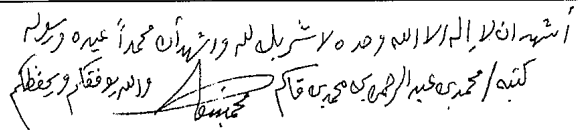 أشهد ان لا إله الا الله وحده لا شريك له واشهد أن محمداً عبده ورسوله
كتبه / محمد بن عبد الرحمن بن محمد بن قاسم والله يوفقكم ويحفظكم